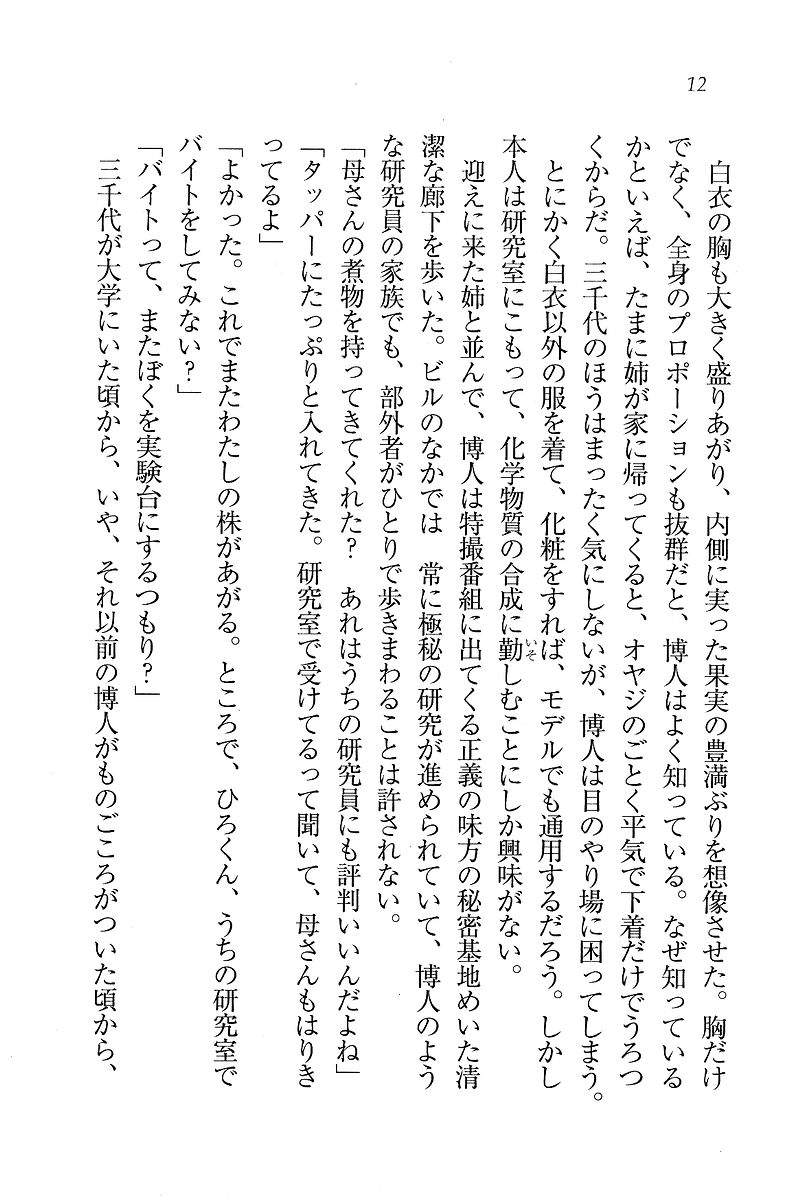 12
白衣の胸も大きく盛りあがり、内側に実った果実の豊満ぶりを想像させた。胸だけ
でなく、全身のプロポーションも抜群だと、博人はよく知っている。なぜ知っている
かといえば、たまに姉が家に帰ってくると、オヤジのごとく平気で下着だけでうろつ
くからだ。三千代のほうはまったく気にしないが、博人は目のやり場に困ってしまう。
とにかく白衣以外の服を着て、化粧をすれば、モデルでも通用するだろう。しかし
本人は研究室にこもって、化学物質の合成に勤いそしむことにしか興味がない。
迎えに来た姉と並んで、博人は特撮番組に出てくる正義の味方の秘密基地めいた清
潔な廊下を歩いた。ビルのなかでは　常に極秘の研究が進められていて、博人のよう
な研究員の家族でも、部外者がひとりで歩きまわることは許されない。
「母さんの煮物を持ってきてくれた？　あれはうちの研究員にも評判いいんだよね」
「タッパーにたっぷりと入れてきた。研究室で受けてるって聞いて、母さんもはりき
ってるよ」
「よかった。これでまたわたしの株があがる。ところで、ひろくん、うちの研究室で
バイトをしてみない？」
「バイトって、またぼくを実験台にするつもり？」
三千代が大学にいた頃から、いや、それ以前の博人がものごころがついた頃から、